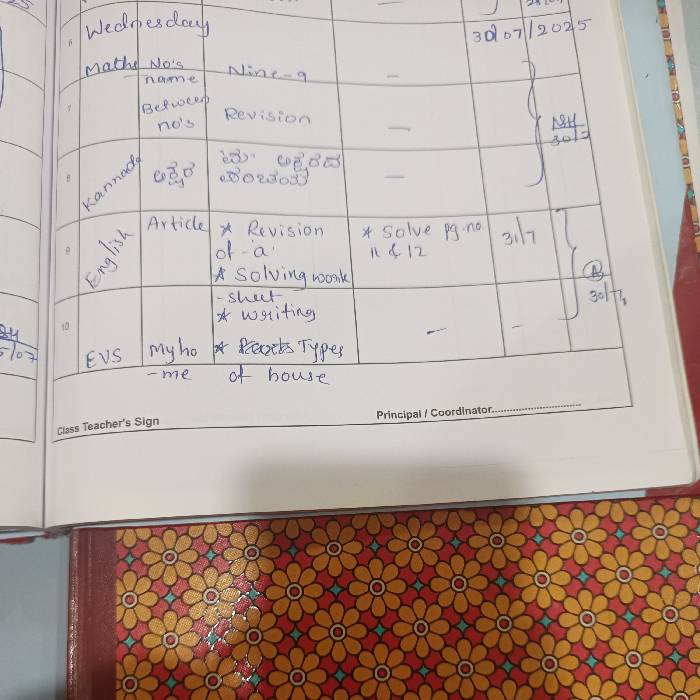 6 Wednesday 30/07/2025
Maths No's Nine-9 —
name
7 Between Revision —
no's
30/7
8 Kannada ಅಕ್ಷರ ಅಕ್ಷರದ —
English Article * Revision * Solve pg.no 31/7
9 of - 'a' 11 & 12
* Solving work
-sheet 30/7
10 * writing
EVS My ho * Types — –
-me of house
Class Teacher's Sign Principal / Coordinator